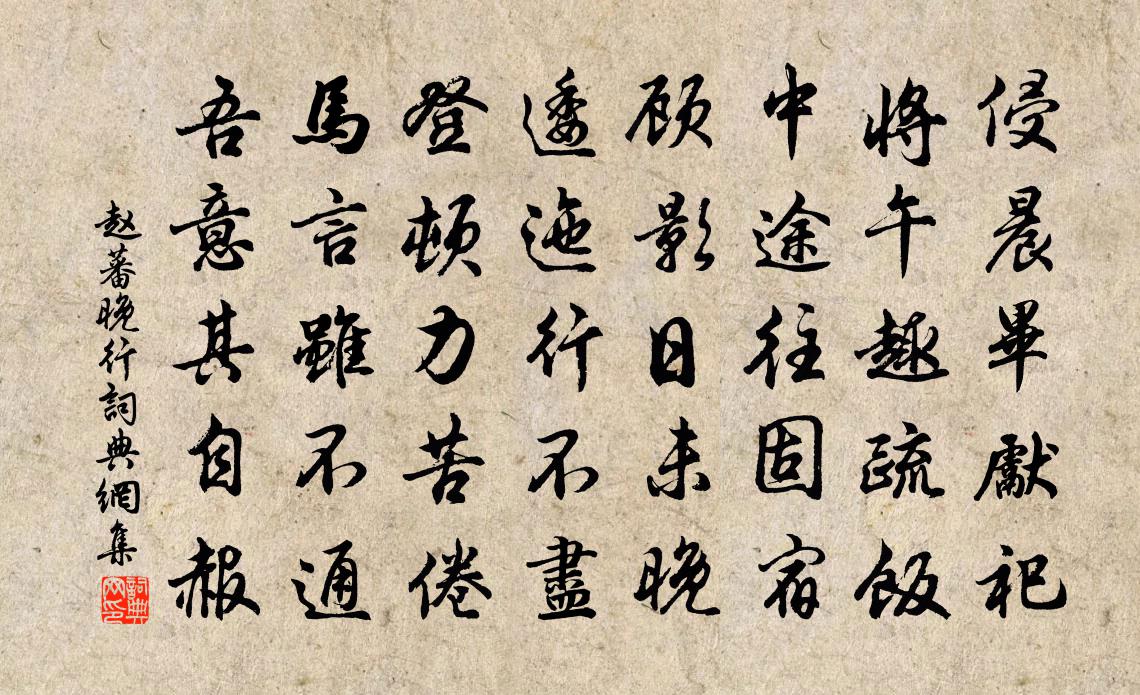 侵晨畢獻祀
將午趣疏飯
中途往固宿
顾影日未晚
逶迤行不盡
登頓力苦倦
馬言雖不通
吾意其自赧
赵蕃晚行詞典網集
詞典网印